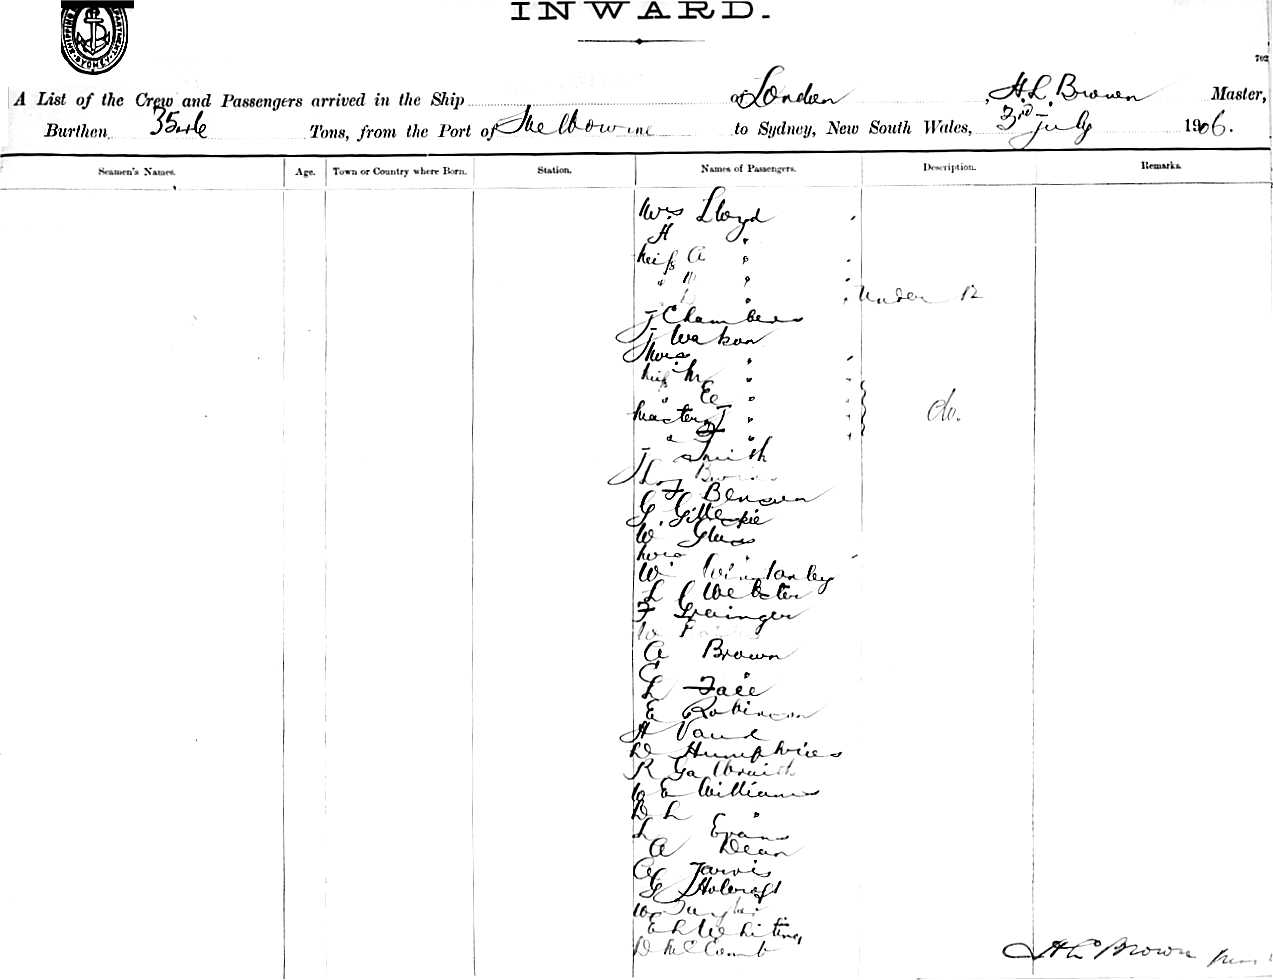 INWARD.
SYDNEY
702
A List of the Crew and Passengers arrived in the Ship of London, H. L. Brown Master,
Burthen Tons, from the Port of Melbourne to Sydney, New South Wales, 3rd July 1906.
Seamen's Names. Age. Town or Country where Born. Station. Names of Passengers. Description. Remarks.
Mrs Lloyd
H "
Miss A "
" "
" under 12
J Chambers
J Watson
Mrs "
Miss M "
" E "
Master J " do.
" "
J Smith
F Benson
G Gillespie
W Glass
Mrs "
W Winstanley
L Webster
F Grainger
A Brown
C "
L Face
E Robinson
H Vaud
D Humphries
R Galbraith
W E Williams
D L "
L Evans
A Dean
G Jarvis
G Holcroft
W Taylor
E L Whiting
D McComb
H L Brown